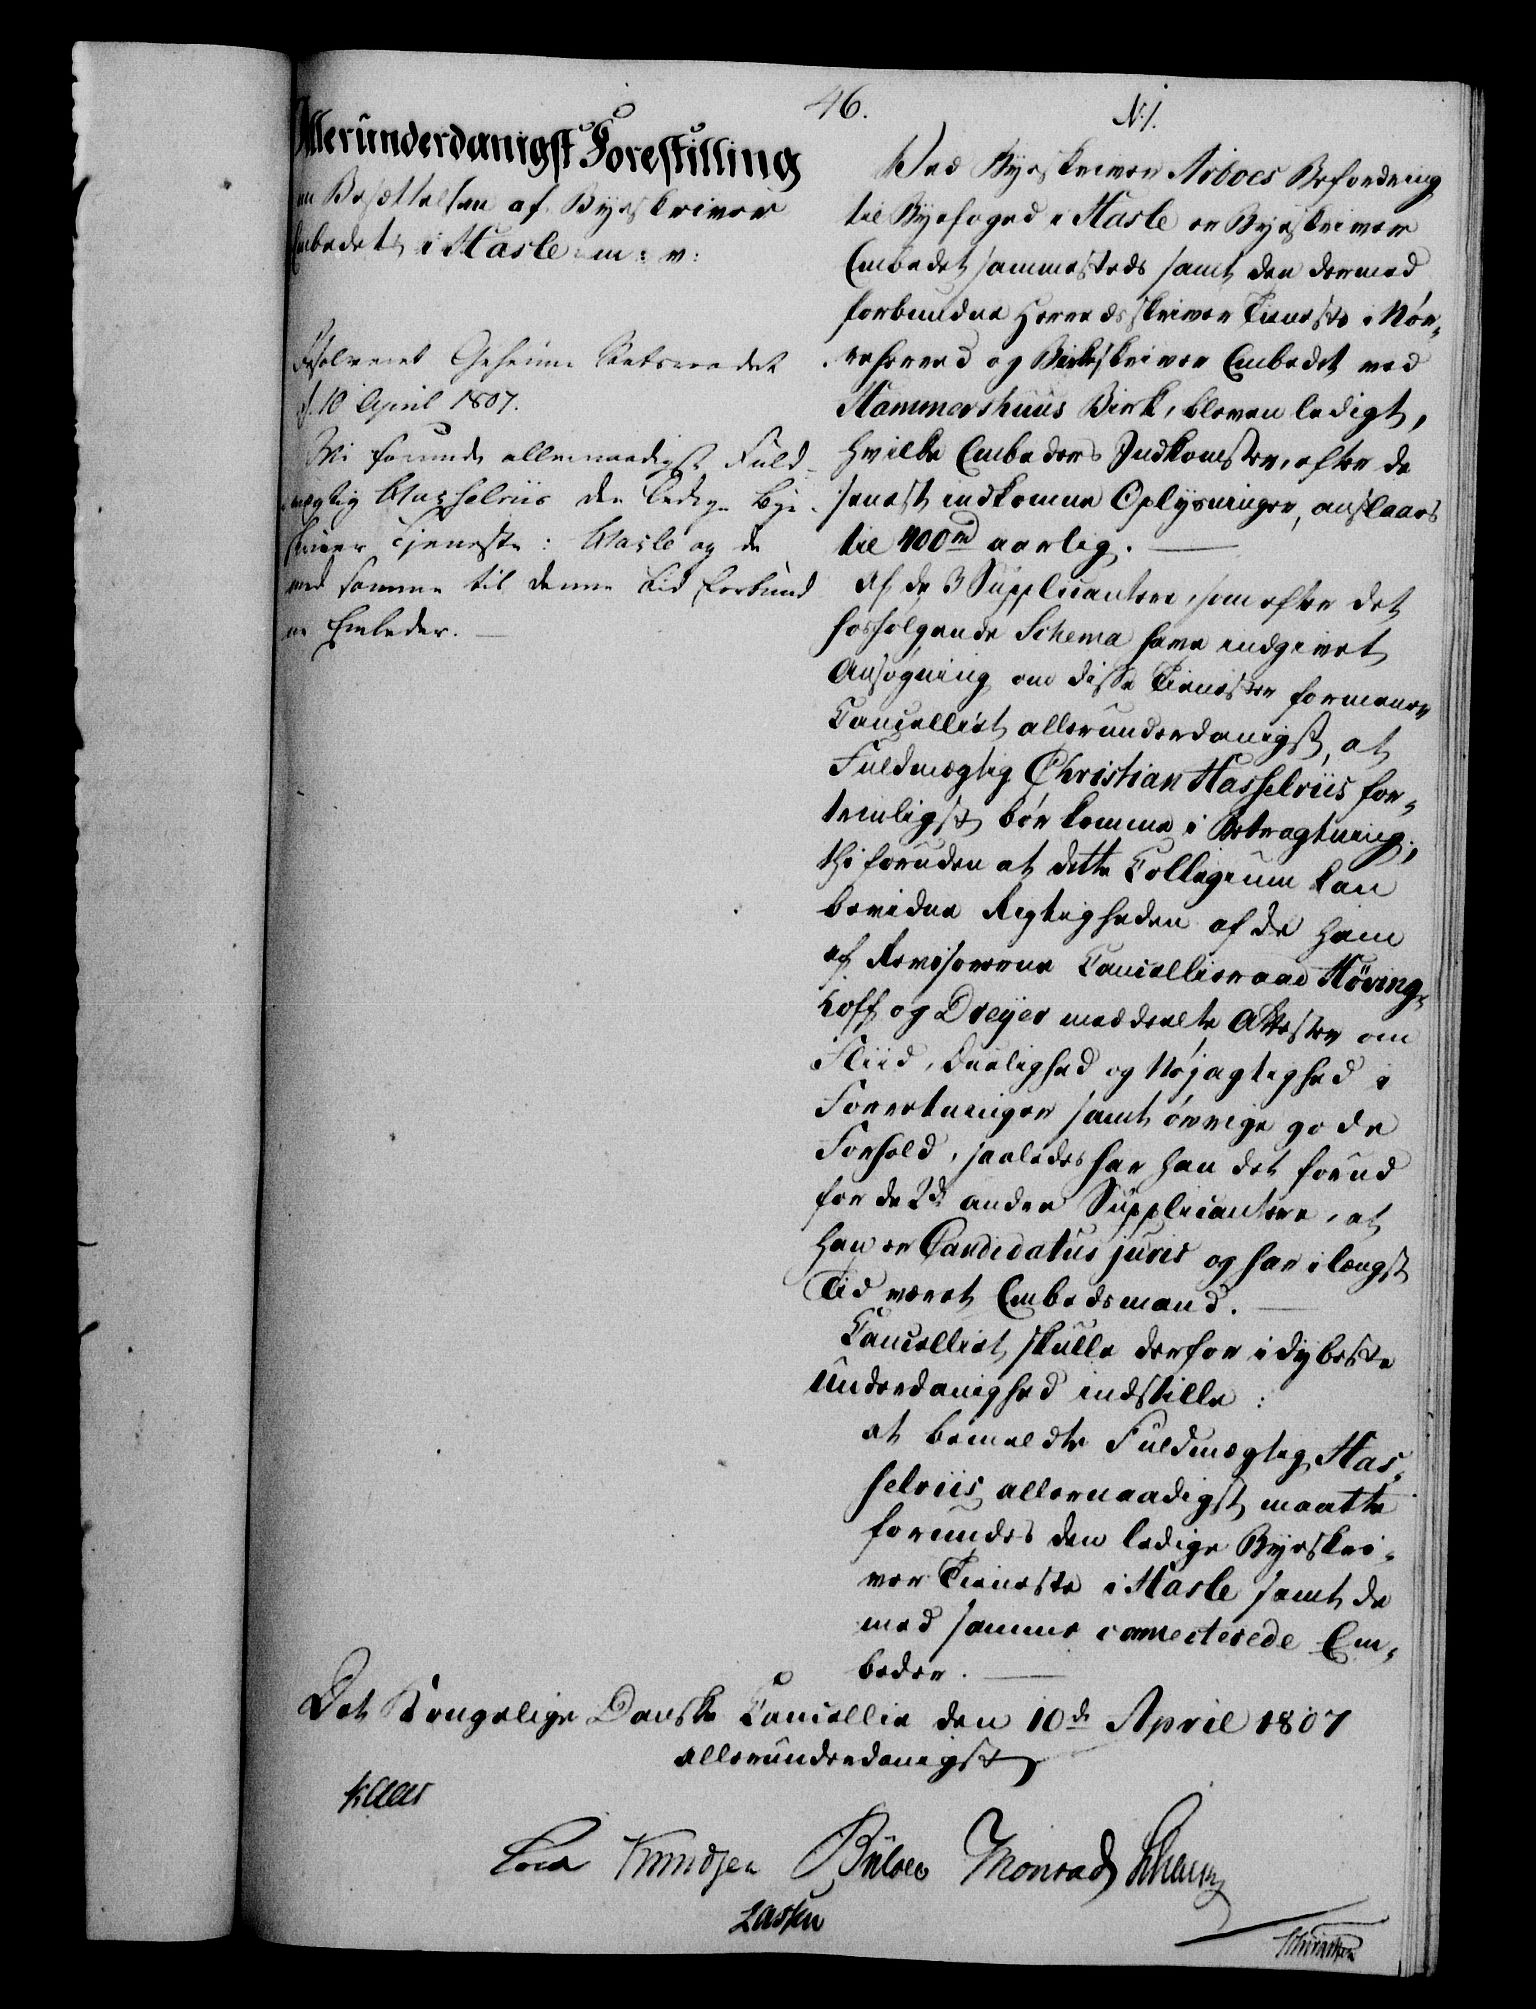 46.
N: 1.
Allerunderdanigst Forestilling
om Besættelsen af Byeskriver
Embedet i Hasle m: v:
Resolveret Geheime Statsraadet
d. 10 April 1807.
Vi forunde allernaadigst Fuld-
mægtig Hasselriis den ledige Bye-
skriver Tjeneste i Hasle og de
med samme til denne Tid forbund
ne Embeder. —
Ved Byeskriver Arboes Befordring
til Byefoged i Hasle er Byeskriver
Embedet sammesteds samt den dermed
forbundne Herredsskriver Tieneste i Nør-
reherred og Birkskriver Embedet ved
Hammershuus Birk, bleven ledigt,
hvilke Embeders Indkomster, efter de
senest indkomne Oplysninger, anslaaes
til 400 rd aarlig. —
Af de 3 Supplicantere, som efter det
hosfølgende Schema have indgivet
Ansøgning om disse Tienester formener
Cancelliet allerunderdanigst, at
Fuldmægtig Christian Hasselriis for-
trinligst bør komme i Betragtning;
thi foruden at dette Collegium kan
bevidne Rigtigheden af de ham
af Revisorerne Cancellieraad Höving-
hoff og Dreyer meddeelte Attester om
Fliid, Duelighed og Nøjagtighed i
Forretninger samt øvrige gode
Forhold, saaledes har han det forud
for de 2de andre Supplicantere, at
han er Candidatus juris og har i længst
Tid været Embedsmand. —
Cancelliet skulle derfor i dybeste
Underdanighed indstille:
at bemeldte Fuldmægtig Has-
selriis allernaadigst maatte
forundes den ledige Byeskri-
ver Tieneste i Hasle samt de
med samme connecterede Em-
beder. —
Det Kongelige Danske Cancellie den 10de April 1807
allerunderdanigst
Kaas
Knudsen Bülow Monrad
Lassen